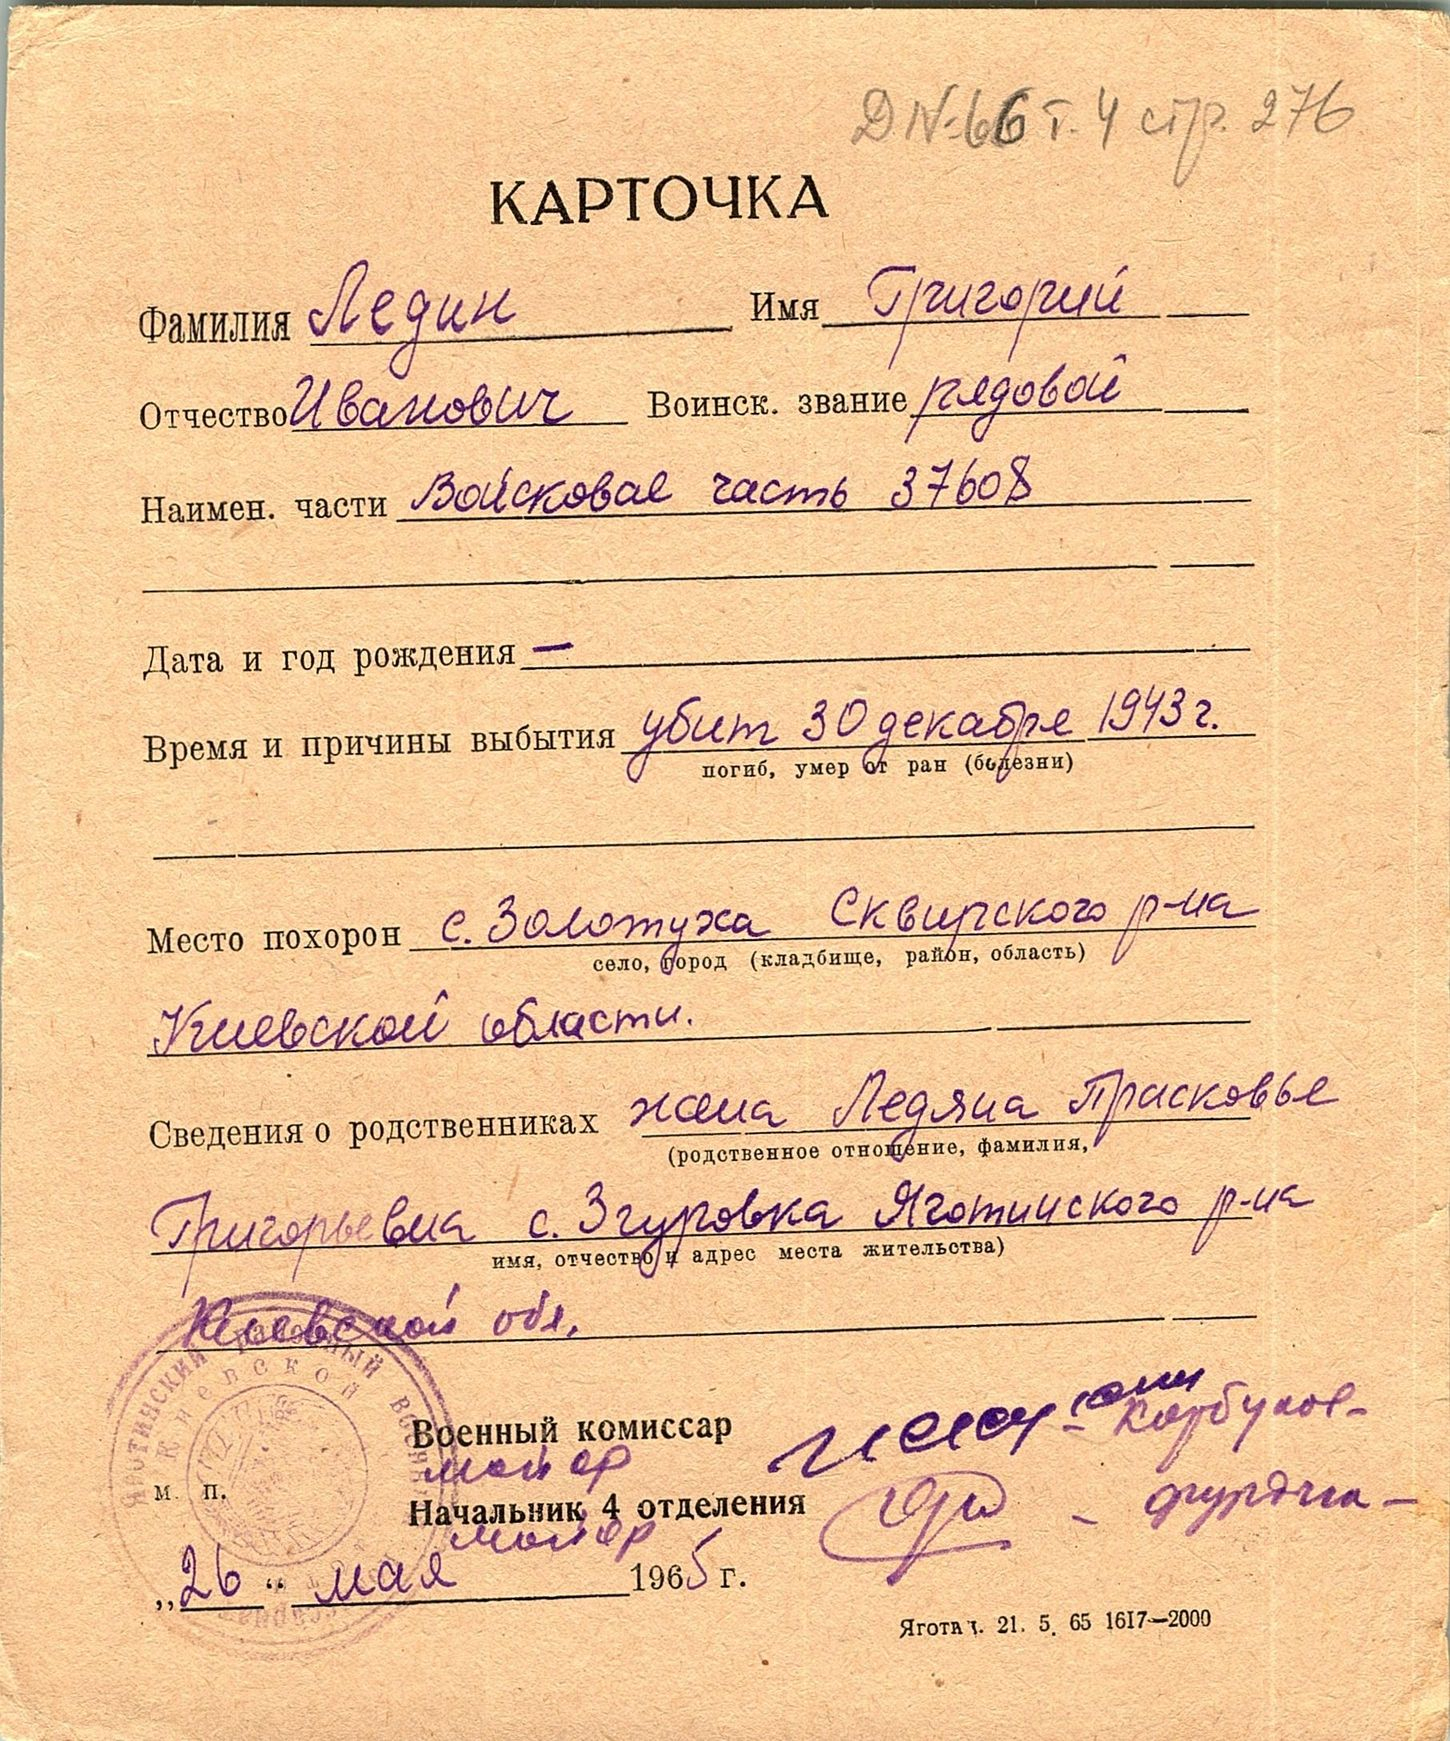 Д N-66 т. 4 стр. 276
КАРТОЧКА
Фамилия Ледин Имя Григорий
Отчество Иванович Воинск. звание рядовой
Наимен. части Войсковая часть 37608
Дата и год рождения —
Время и причины выбытия убит 30 декабря 1943 г.
погиб, умер от ран (болезни)
Место похорон с. Золотуха Сквирского р-на
село, город (кладбище, район, область)
Киевской области.
Сведения о родственниках жена Ледяна Прасковья
(родственное отношение, фамилия,
Григорьевна с. Згуровка Яготинского р-на
имя, отчество и адрес места жительства)
Киевской обл.
Яготинский районный
Киевской
Военный комиссар
майор
м. п.
Начальник 4 отделения
майор
„26“ мая 1965 г.
Яготин. 21. 5. 65 1617—2000